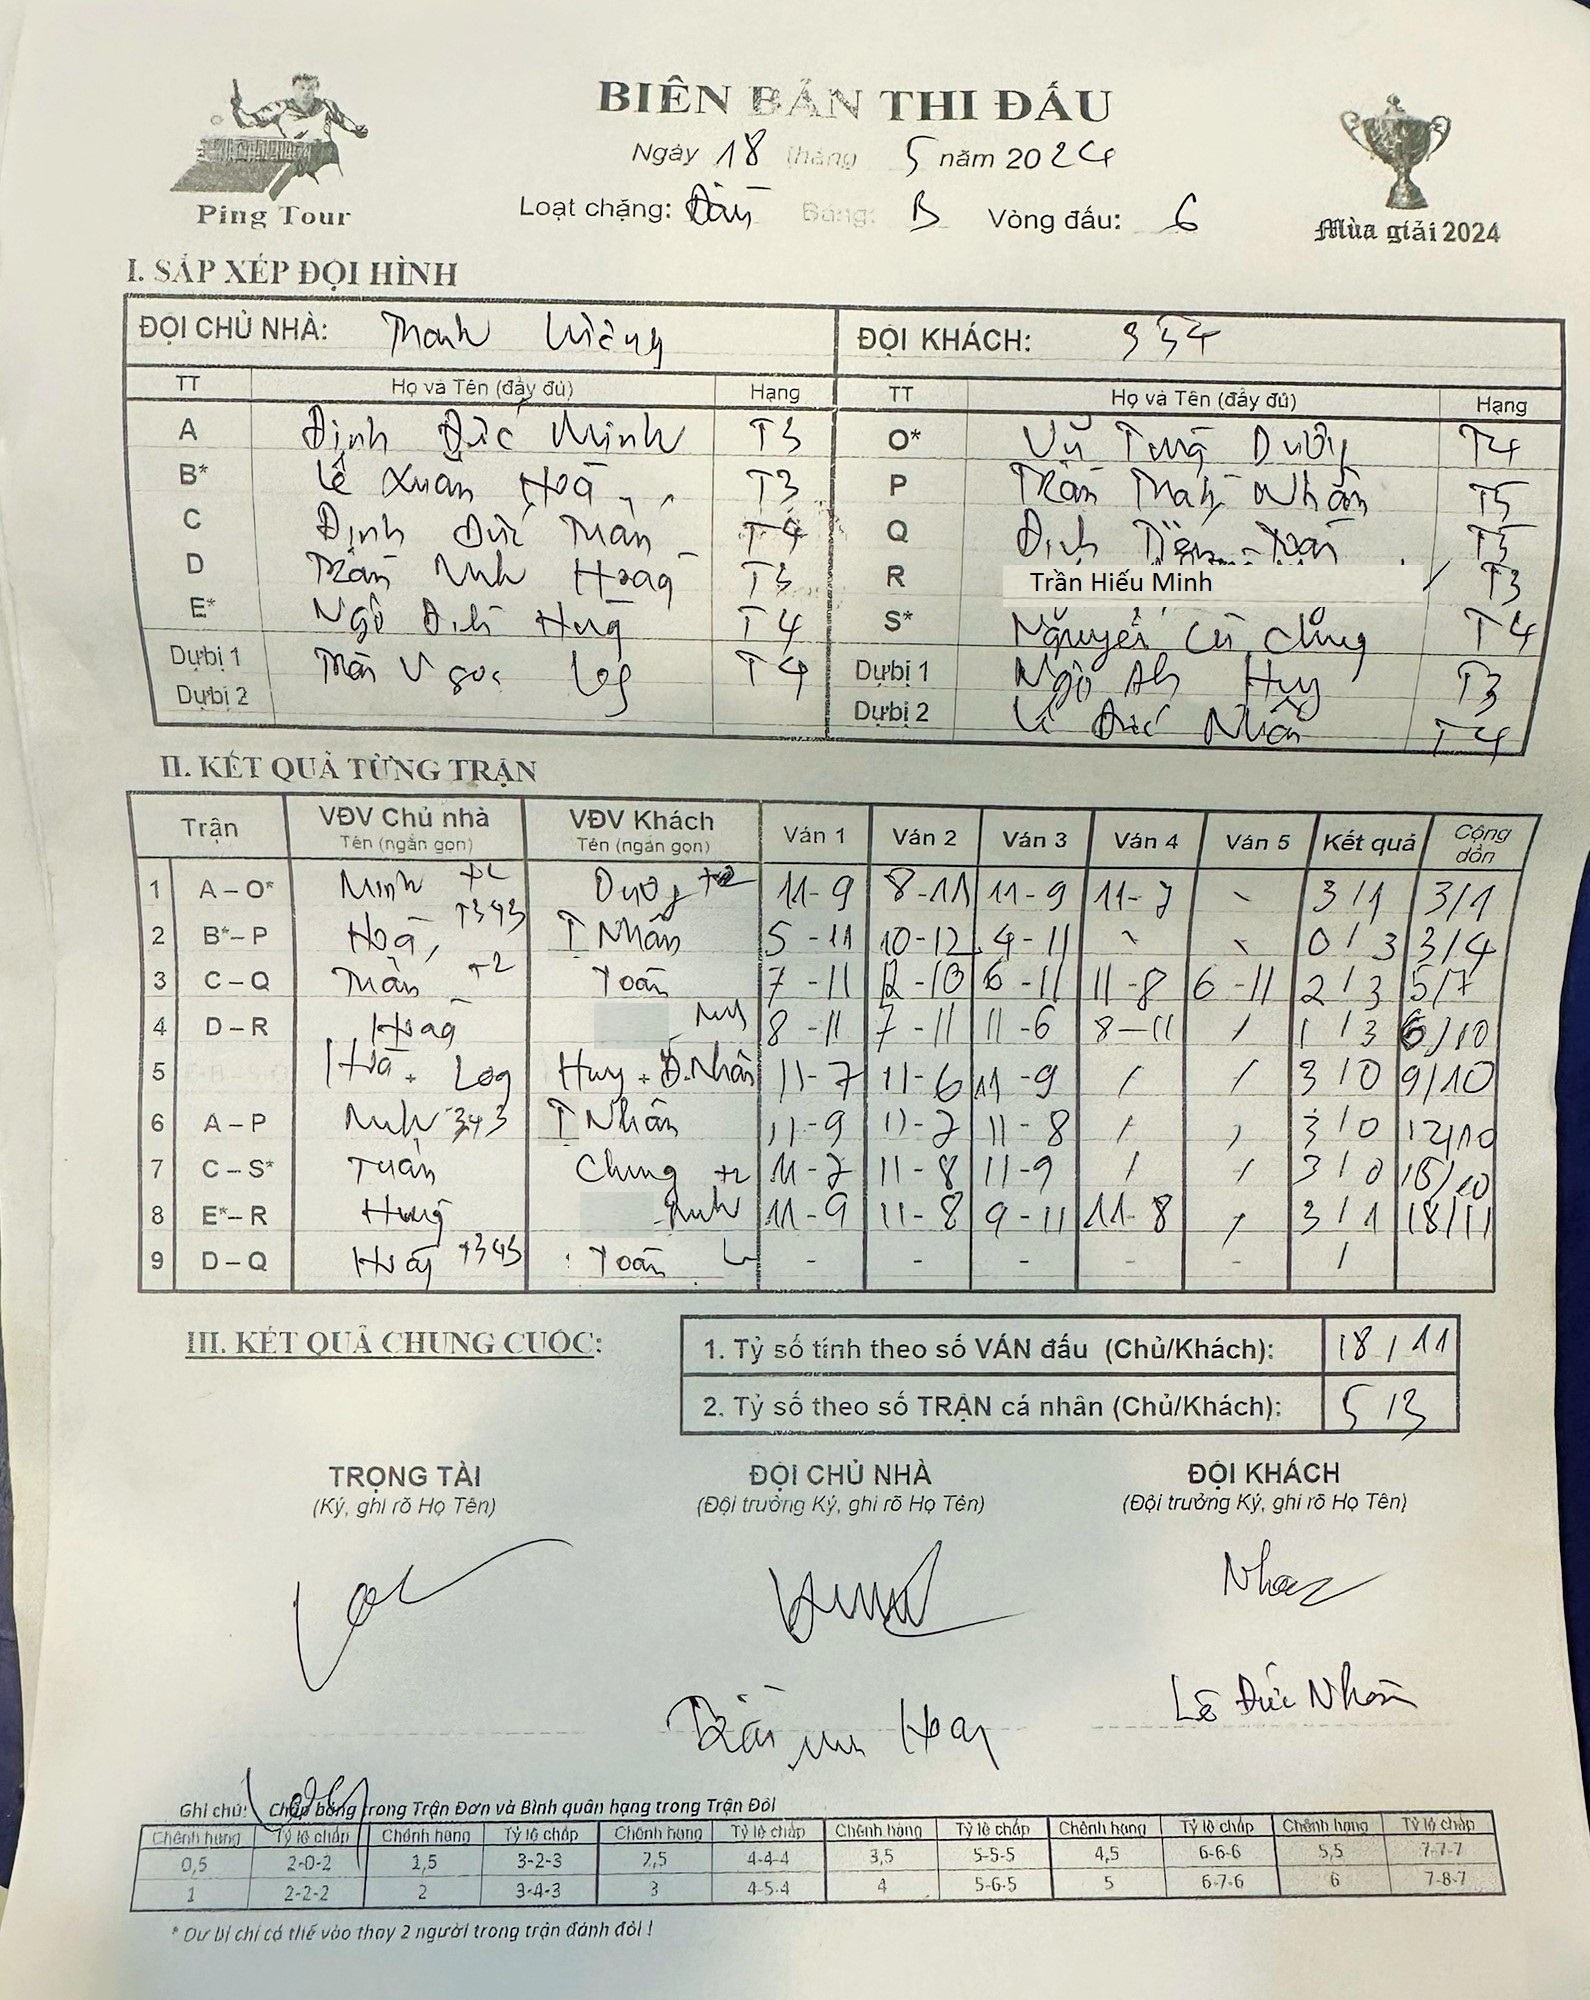 BIÊN BẢN THI ĐẤU
Ngày 18 tháng 5 năm 2024
Ping Tour
Loạt chặng: Bảng: B Vòng đấu: 6
Mùa giải 2024
I. SẮP XẾP ĐỘI HÌNH
ĐỘI CHỦ NHÀ: ĐỘI KHÁCH: 334
TT Họ và Tên (đầy đủ) Hạng TT Họ và Tên (đầy đủ) Hạng
A Định Đức Minh T3 O* Vũ Tùng Dương T4
B* Lê Xuân Hoà T3 P Trần Thanh Nhàn T5
C Định Đức Tuấn T4 Q Đinh Tiến Toàn T5
D Trần Anh Hoàng T3 R Trần Hiếu Minh T3
E* Ngô Đình Hùng T4 S* Nguyễn Chung T4
Dự bị 1 Trần Ngọc T4 Dự bị 1 Ngô Huy T3
Dự bị 2 Dự bị 2 Lê Đức Nhân T4
II. KẾT QUẢ TỪNG TRẬN
Trận VĐV Chủ nhà Tên (ngắn gọn) VĐV Khách Tên (ngắn gọn) Ván 1 Ván 2 Ván 3 Ván 4 Ván 5 Kết quả Cộng dồn
1 A – O* Minh +2 Dương 11-9 8-11 11-9 11-7 3/1 3/1
2 B* – P Hoà, +343 T Nhàn 5-11 10-12 4-11 0/3 3/4
3 C – Q Tuấn +2 Toàn 7-11 12-10 6-11 11-8 6-11 2/3 5/7
4 D – R Hoàng 8-11 7-11 11-6 8-11 / 1/3 6/10
5 Hoà + Huy + Đ.Nhân 11-7 11-6 11-9 / / 3/0 9/10
6 A – P 343 T Nhàn 11-9 11-7 11-8 / 3/0 12/10
7 C – S* Tuấn Chung +2 11-7 11-8 11-9 / / 3/0 15/10
8 E* – R Hùng 11-9 11-8 9-11 11-8 3/1 18/11
9 D – Q Hoàng +343 Toàn - - - - - /
III. KẾT QUẢ CHUNG CUỘC:
1. Tỷ số tính theo số VÁN đấu (Chủ/Khách): 18/11
2. Tỷ số theo số TRẬN cá nhân (Chủ/Khách): 5/3
TRỌNG TÀI ĐỘI CHỦ NHÀ ĐỘI KHÁCH
(Ký, ghi rõ Họ Tên) (Đội trưởng Ký, ghi rõ Họ Tên) (Đội trưởng Ký, ghi rõ Họ Tên)
Lê Đức Nhân
Ghi chú: Chấp bóng trong Trận Đơn và Bình quân hạng trong Trận Đôi
Chênh hạng Tỷ lệ chấp Chênh hạng Tỷ lệ chấp Chênh hạng Tỷ lệ chấp Chênh hạng Tỷ lệ chấp Chênh hạng Tỷ lệ chấp Chênh hạng Tỷ lệ chấp
0,5 2-0-2 1,5 3-2-3 2,5 4-4-4 3,5 5-5-5 4,5 6-6-6 5,5 7-7-7
1 2-2-2 2 3-4-3 3 4-5-4 4 5-6-5 5 6-7-6 6 7-8-7
* Dự bị chỉ có thể vào thay 2 người trong trận đánh đôi !